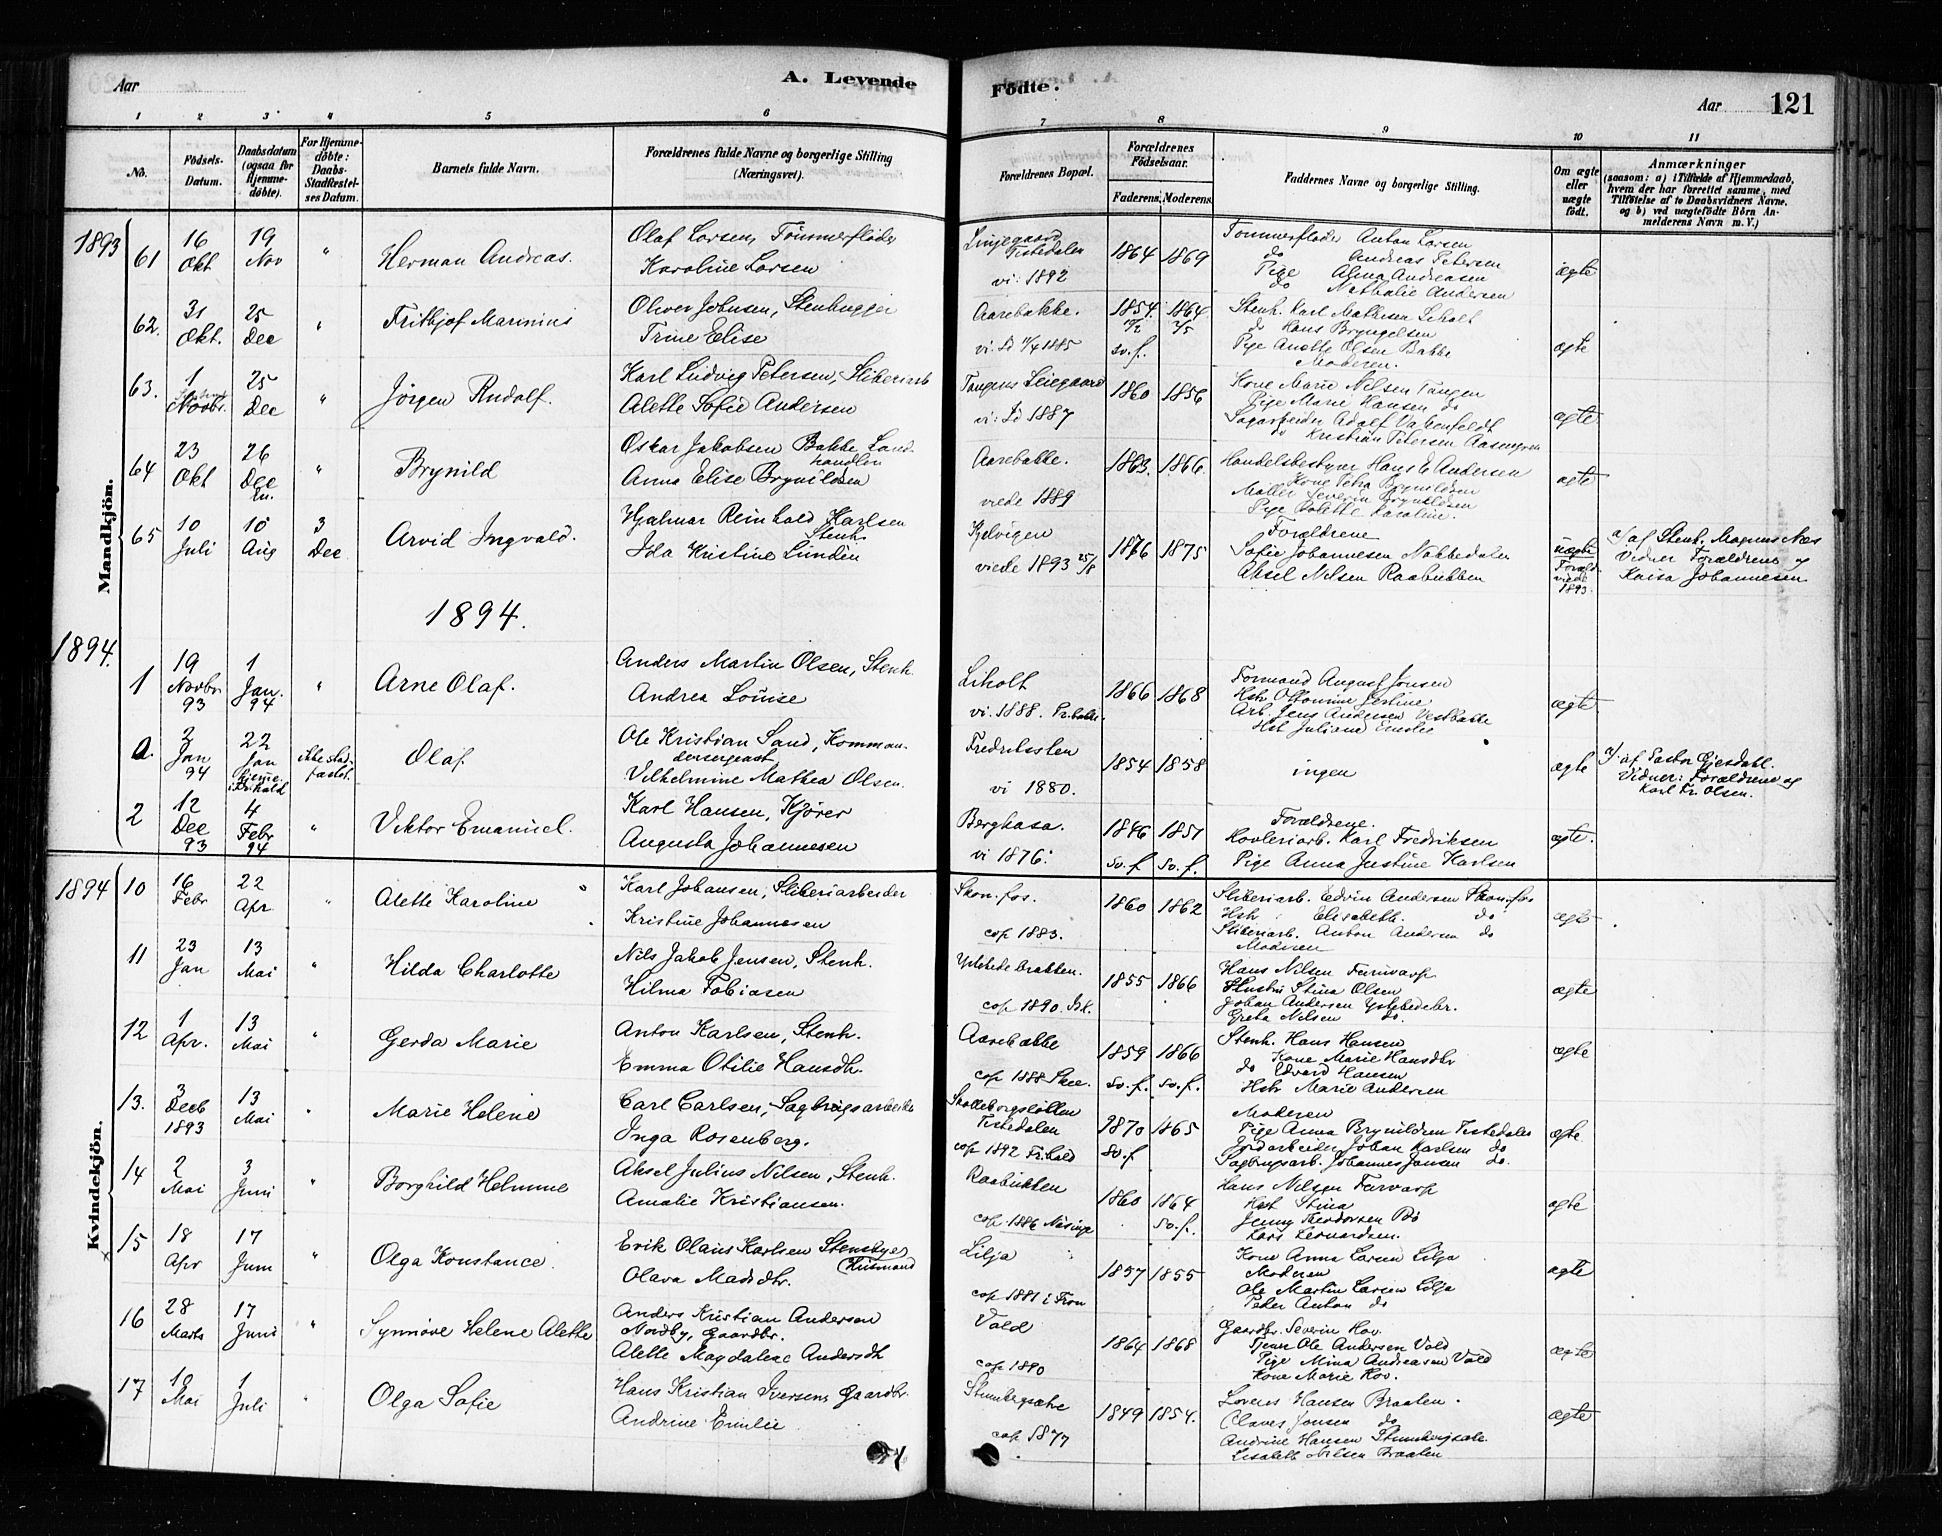 Aar
A. Levende
Födte.
Aar
121
1 2 3 4 5 6 7 8 9 10 11
No.
Födsels-Datum.
Daabsdatum (ogsaa för Hjemme-döbte).
For Hjemme-döbte: Daabs-Stadfæstel-ses Datum.
Barnets fulde Navn.
Forældrenes fulde Navne og borgerlige Stilling (Næringsvei).
Forældrenes Bopæl.
Forældrenes Födselsaar.
Faderens. Moderens.
Faddernes Navne og borgerlige Stilling.
Om ægte eller uægte født.
Anmærkninger (saasom: a) i Tilfælde af Hjemmedaab, hvem der har forrettet samme, med Tilföielse af to Daabsvidners Navne, og b) ved uægtefödte Börn An-melderens Navn m. V.)
Mandkjön.
1893
61
16 Okt
19 Nov
"
Herman Andreas.
Olaf Larsen, Tömmerfløder
Karoline Larsen
Tistedalen
vi: 1892
1864 1869
Tömmerfløder Anton Larsen
do Andreas Petersen
Pige Alma Andreasen
do Nathalie Andersen
ægte
62.
31 Okt.
25 Dec
"
Fritbjof Marinius
Oliver Johnsen, Stenhugger
Trine Elise
Aarebakke.
1854. 1864
Stenh. Karl Mathisen Liholt
do Hans Bryngelsen
Pige Anette Olsen Bakke
Moderen.
ægte
63.
1
25 Dec
"
Jörgen Rudolf.
Karl Ludvig Petersen, Sliberiarb
Alette Sofie Andersen
vi: Id 1887
1860 1856
Kone Marie Nilsen Tangen
Pige Marie Hansen do
do Kristian Petersen
ægte
64
23 Okt
26 Dec
"
Brynild
Oskar Jakobsen Bakke Land-
handler
Anna Elise Brynildsen
Aarebakke.
viede 1889
1863. 1866.
Handelsbestyrer Hans E Andersen
Kone Petra Brynildsen
Møller Severin Brynildsen
Pige Kolette Karoline.
ægte
65
10 Juli
10 Aug
3 Dec
Arvid Ingvald.
Hjalmar Reinhold Karlsen
Stenh.
Ida Kristine Lundin
Kjelvigen
viede 1893 25/8
1876 1875
Forældrene
Sofie Johannesen Nabbedalen
Aksel Nilsen Raabukken
uægte
Foræld.
viede
1893.
a) af Stenh. Magnus Næs
Vidner Forældrene og
Kaisa Johannesen
1894.
1894.
1
19 Novbr 93
1 Jan. 94
"
Arne Olaf.
Anders Martin Olsen, Stenh.
Andrea Louise
Liholt
vi. 1888.
1866 1868
Formand August Jonsen
Arb. Jens Andersen Vestbakke
Hst Juliane Emilie
ægte
a.
2 Jan 94
22 Jan
ikke stad-
fæstet.
Olaf
Ole Kristian Sand, Komman-
dersergeant
Vilhelmine Mathea Olsen.
Fredriksten
vi 1880.
1854 1858
ingen
ægte
af Pastor Gjesdahl.
Vidner: Forældrene og
Karl Fr. Olsen.
2
12 Dec 93
4 Febr 94
"
Viktor Emanuel.
Karl Hansen, Kjører
Augusta Johannesen
Berghasa.
vi 1876.
1846 1851
Sv. f. Sv. f.
Forældrene.
Høvleriarb. Karl Fredriksen
Pige Anna Justine Karlsen
ægte.
Kvindekjön.
1894
10
16 Febr
22 Apr
"
Alette Karoline
Karl Johansen, Sliberiarbeider
Kristine Johannesen
Skon.fos.
cop 1883.
1860 1862
Sliberiarb. Edvin Andersen Skon.fos
Hst. Elisabeth. do
Sliberiarb. Anton Andersen do
Moderen
ægte
11
23 Jan
13 Mai
"
Hilda Charlotte
Nils Jakob Jensen, Stenh.
Hilma Tobiasen
cop 1890.
1855 1866
Hans Nilsen Furuvarp
Hustru Stina Olsen
Johan Andersen
Greta Nilsen do.
ægte
12
1 Apr.
13 Mai
"
Gerda Marie
Anton Karlsen, Stenh.
Emma Otilie Hansdtr.
Aarebakke
cop 1888 Skee.
1859 1866
Sv. f. Sv. f.
Stenh. Hans Hansen
Kone Marie Hansdtr
do Edvard Hansen
Hst Marie Andersen
ægte
13.
3 Decb 1893
13 Mai
"
Marie Helene
Carl Carlsen, Sagbrugsarbeider
Inga Rosenberg.
Tistedalen
cop 1892 Fr.hald
1870 1865
Sv. f
Moderen
Pige Anna Brynildsen Tistedalen
Jordarbeider Johan Karlsen do
Sagbrugsarb. Johannes Jansen do.
ægte
14
2 Mai
3 Juni
"
Borghild Helmine
Aksel Julius Nilsen, Stenh.
Amalie Kristiansen.
Raabukken
cop 1886 Näsinge
1860 1864
Sv. f.
Hans Nilsen Furuvarp
Hst Stina
Jenny Theodorsen Bø
Lars Leonardsen.
ægte
15
18 Apr
17 Juni
"
Olga Konstance.
Erik Olaus Karlsen Stensbyes
(Husmand
Olava Madsdtr.
Lilja
cop 1881 i Tron
1857 1855
Kone Anna Larsen Lilja
Moderen
Ole Martin Larsen Lilja
Peder Anton do
ægte
16
28 Marts
17 Juni
"
Synnöve Helene Alette
Anders Kristian Andersen
Nordby, Gaardbr.
Alette Magdalene Andersdtr
Vold
cop 1890
1864 1868
Gaardbr. Severin Hov.
Tjener Ole Andersen Vold
Pige Mina Andreasen Vold
Kone Marie Hov.
ægte
17
10 Mai
1 Juli
"
Olga Sofie
Hans Kristian Iversen, Gaardbr.
Andrine Emilie
cop 1877
1849 1854.
Lorens Hansen Braaten.
Olaves Jonsen do
Andrine Hansen
Lisabeth Nilsen Braaten
ægte